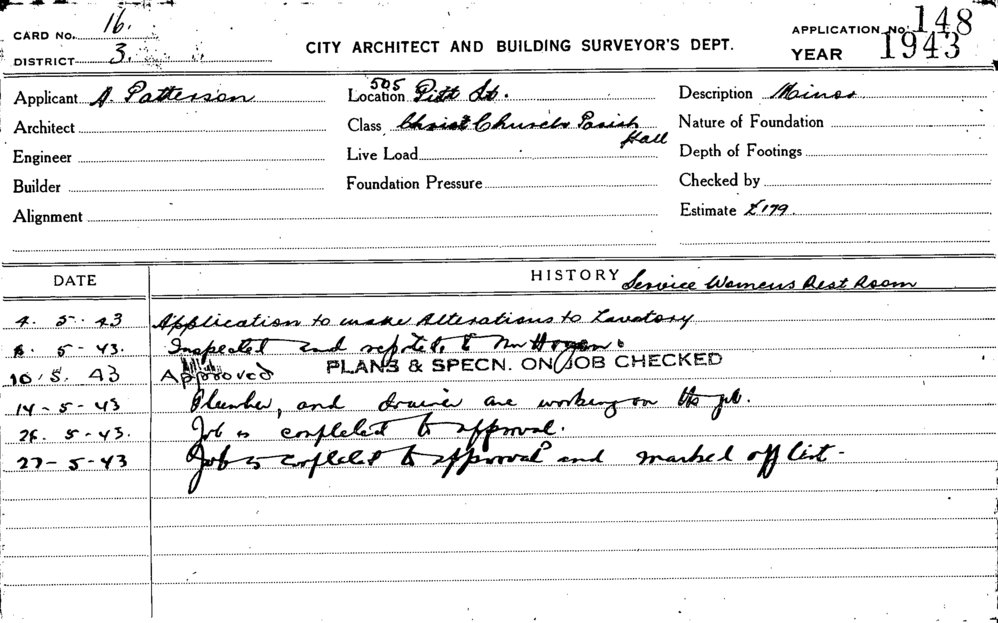 CARD No. 16.
DISTRICT 3.
CITY ARCHITECT AND BUILDING SURVEYOR'S DEPT.
APPLICATION No. 148
YEAR 1943
Applicant A. Patterson
Architect
Engineer
Builder
Alignment
Location 505 Pitt St.
Class Christ Church Parish Hall
Live Load
Foundation Pressure
Description Minor
Nature of Foundation
Depth of Footings
Checked by
Estimate £179.
DATE
HISTORY Service Womens Rest Room
4. 5. 43 Application to make Alterations to Lavatory
5-43. Inspected and reported to Mr Hogan.
10.5.43 Approved PLANS & SPECN. ON JOB CHECKED
14-5-43 Plumber, and drainer are working on the job.
26. 5-43. Job is completed to approval.
27-5-43 Job is completed to approval and marked off list-